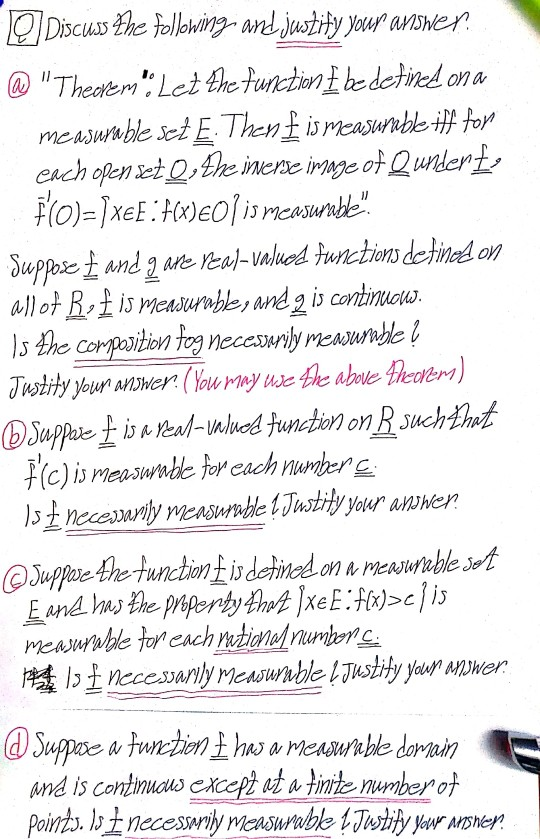 Q Discuss the following and justify your answer.
(a) "Theorem": Let the function f be defined on a
measurable set E. Then f is measurable iff for
each open set O, the inverse image of O under f,
f⁻¹(O)={x∈E: f(x)∈O} is measurable".
Suppose f and g are real-valued functions defined on
all of R, f is measurable, and g is continuous.
Is the composition fog necessarily measurable?
Justify your answer. (You may use the above theorem)
(b) Suppose f is a real-valued function on R such that
f⁻¹(c) is measurable for each number c.
Is f necessarily measurable? Justify your answer.
(c) Suppose the function f is defined on a measurable set
E and has the property that {x∈E: f(x)>c} is
measurable for each rational number c.
Is f necessarily measurable? Justify your answer.
(d) Suppose a function f has a measurable domain
and is continuous except at a finite number of
points. Is f necessarily measurable? Justify your answer.